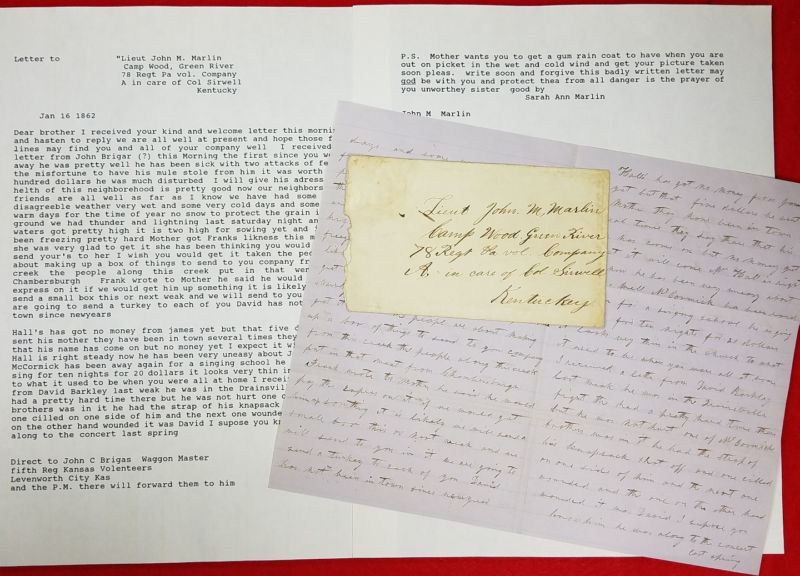 Letter to "Lieut John M. Marlin
Camp Wood, Green River
78 Regt Pa vol. Company
A in care of Col Sirwell
Kentucky
Jan 16 1862
Dear brother I received your kind and welcome letter this mornin
and hasten to reply we are all well at present and hope those f
lines may find you and all of your company well I received
letter from John Brigar (?) this Morning the first since you we
away he was pretty well he has been sick with two attacks of fe
the misfortune to have his mule stolen from him it was worth
hundred dollars he was much disturbed I will give his adress
helth of this neighborehood is pretty good now our neighbors
friends are all well as far as I know we have had some
disagreeable weather very wet and some very cold days and some
warm days for the time of year no snow to protect the grain i
ground we had thunder and lightning last saturday night an
waters got pretty high it is two high for sowing yet and i
been freezing pretty hard Mother got Franks likness this m
she was very glad to get it she has been thinking you would
send your's to her I wish you would get it taken the ped
about making up a box of things to send to you company fr
creek the people along this creek put in that wer
Chambersburgh Frank wrote to Mother he said he would
express on it if we would get him up something it is likely
send a small box this or next week and we will send to you
are going to send a turkey to each of you David has not
town since newyears
Hall's has got no money from james yet but that five d
sent his mother they have been in town several times they
that his name has come on but no money yet I expect it wi
Hall is right steady now he has been very uneasy about J
McCormick has been away again for a singing school he
sing for ten nights for 20 dollars it looks very thin in
to what it used to be when you were all at home I recei
from David Barkley last weak he was in the Drainsvill
had a pretty hard time there but he was not hurt one o
brothers was in it he had the strap of his knapsack
one cilled on one side of him and the next one wounde
on the other hand wounded it was David I supose you k
along to the concert last spring
Direct to John C Brigas Waggon Master
fifth Reg Kansas Volenteers
Levenworth City Kas
and the P.M. there will forward them to him
P.S. Mother wants you to get a gum rain coat to have when you are
out on picket in the wet and cold wind and get your picture taken
soon pleas. write soon and forgive this badly written letter may
god be with you and protect thea from all danger is the prayer of
you unworthey sister good by
Sarah Ann Marlin
John M Marlin
Lieut John M. Marlin
Camp Wood Green River
78 Regt Pa vol. Company
A. in care of Col Sirwell
Kentuckey
days and some
people are about making
up a box of things to send to you company
from this creek the people along this creek
put in that were from Chambersburgh
Frank wrote to Mother he said he would
pay the express on it if we would get him
something it is likely we will send a
small box this or next week and we
will send to you in it we are going to
send a turkey to each of you David
has not been in town since newyears
Halls has got no money from james
yet but that five dollars he sent
his Mother they have been in town
several times they say
McCormick has been away
again for a singing school he is going
to sing for ten nights for 20 dollars
it looks very thin in
to what it used to be when you were all at home
I received a letter from David Barkley
last weak he was in the Drainsville
fight they had a pretty hard time there
but he was not hurt one of McCormick
brothers was in it he had the strap of
his knapsack shot off and one cilled
on one side of him and the next one
wounded and the one on the other hand
wounded it was David I supose you
know him he was along to the concert
last spring